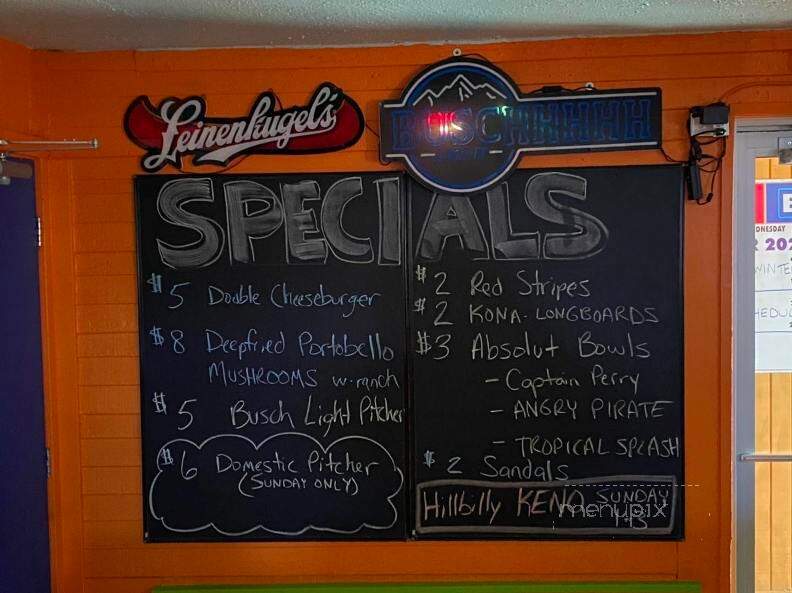 Leinenkugel's
BUSCHHHHH
SPECIALS
$5 Double Cheeseburger
$8 Deepfried Portobello
MUSHROOMS w. ranch
$5 Busch Light Pitcher
$6 Domestic Pitcher
(SUNDAY ONLY)
$2 Red Stripes
$2 KONA - LONGBOARDS
$3 Absolut Bowls
- Captain Perry
- ANGRY PIRATE
- TROPICAL SPLASH
$2 Sandals
Hillbilly KENO SUNDAY
menupix